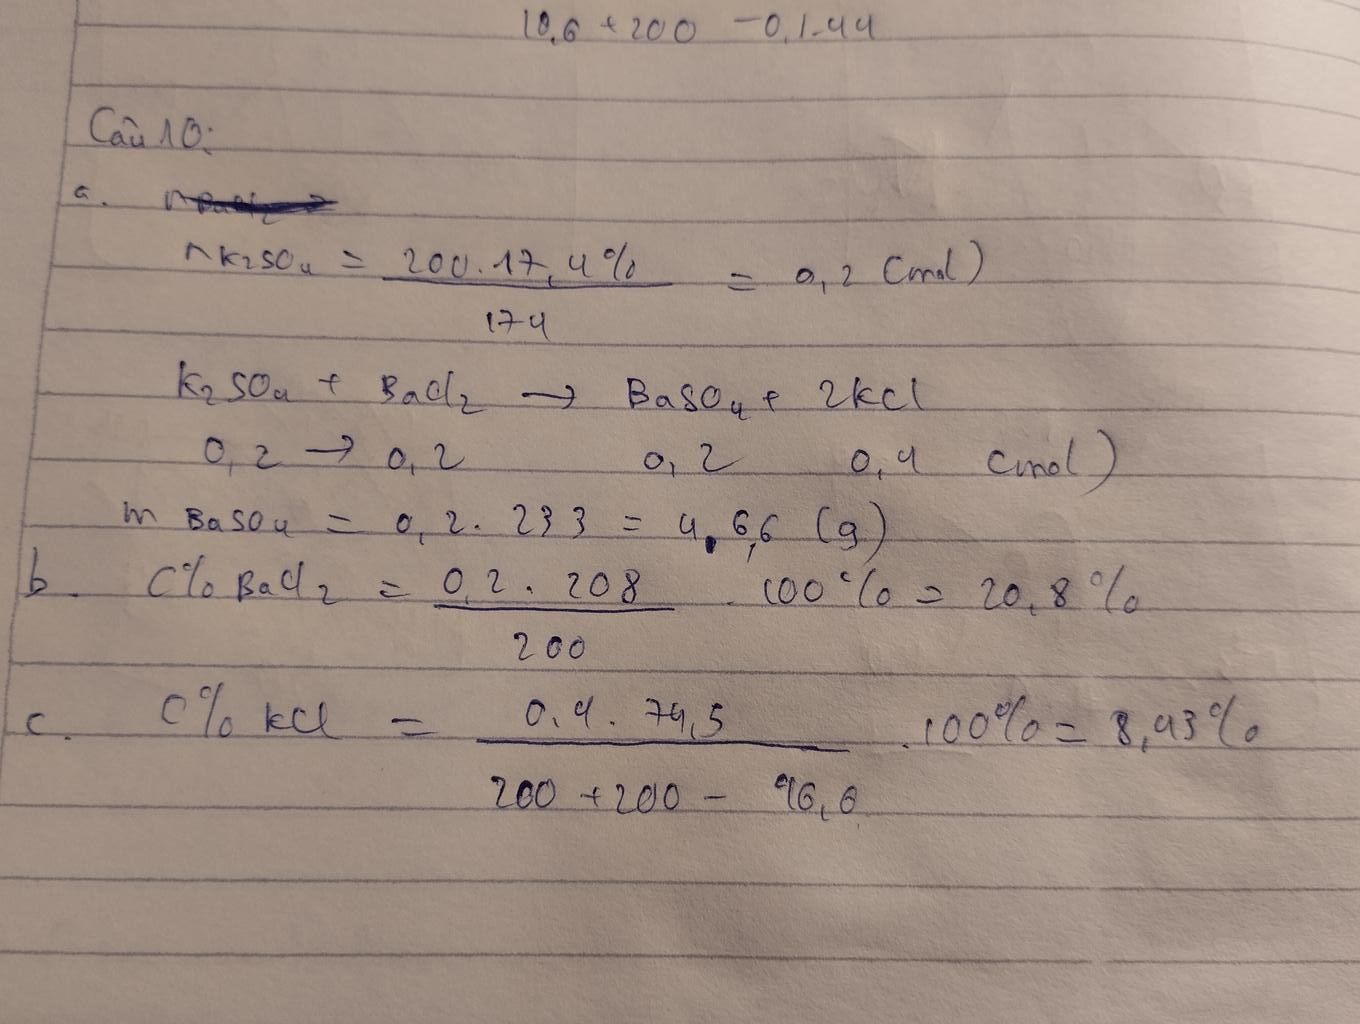 10,6 + 200 - 0,1.44
Câu 10:
a.
nK2SO4 = 200.17,4% / 174 = 0,2 (mol)
K2SO4 + BaCl2 → BaSO4 + 2KCl
0,2 → 0,2 0,2 0,4 (mol)
m BaSO4 = 0,2. 233 = 46,6 (g)
b. C% BaCl2 = 0,2. 208 / 200 . 100% = 20,8%
c. C% KCl = 0,4. 74,5 / 200 + 200 - 46,6 .100% = 8,43%